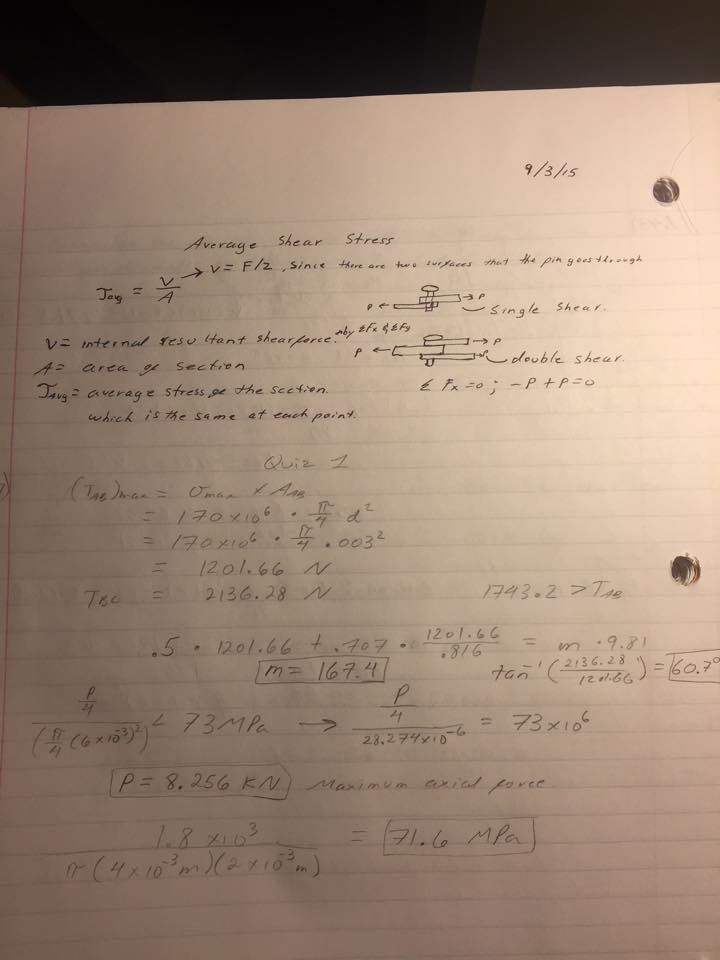 9/3/15
Average Shear Stress
τavg = V/A → V = F/2, since there are two surfaces that the pin goes through
P ← → P Single Shear.
V = internal resultant shear force. → by ΣFx & ΣFy
P ← → P
A = area of section
→ P double shear.
τavg = average stress of the section.
Σ Fx = 0 ; -P + P = 0
which is the same at each point.
Quiz 1
(TAB)max = σmax × AAB
= 170×10⁶ · π/4 d²
= 170×10⁶ · π/4 · .003²
= 1201.66 N
TBC = 2136.28 N
1743.2 > TAB
.5 · 1201.66 + .707 · 1201.66/.816 = m · 9.81
m = 167.4
tan⁻¹(2136.28/1201.66) = 60.7°
(P/4)/(π/4 (6×10⁻³)²) < 73 MPa → (P/4)/(28.274×10⁻⁶) = 73×10⁶
P = 8.256 KN Maximum axial force
1.8 ×10³/(π(4×10⁻³m)(2×10⁻³m)) = 71.6 MPa